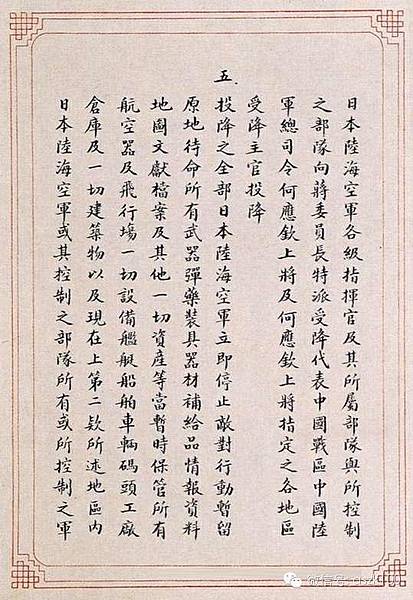 日本陸海空軍各級指揮官及其所屬部隊與所控制
之部隊向蔣委員長特派受降代表中國戰區中國陸
軍總司令何應欽上將及何應欽上將指定之各地區
受降主官投降
五、
投降之全部日本陸海空軍立即停止敵對行動暫留
原地待命所有武器彈藥裝具器材補給品情報資料
地圖文獻檔案及其他一切資產等當暫時保管所有
航空器及飛行場一切設備艦艇船舶車輛碼頭工廠
倉庫及一切建築物以及現在上第二欵所述地區內
日本陸海空軍或其控制之部隊所有或所控制之軍
微信号